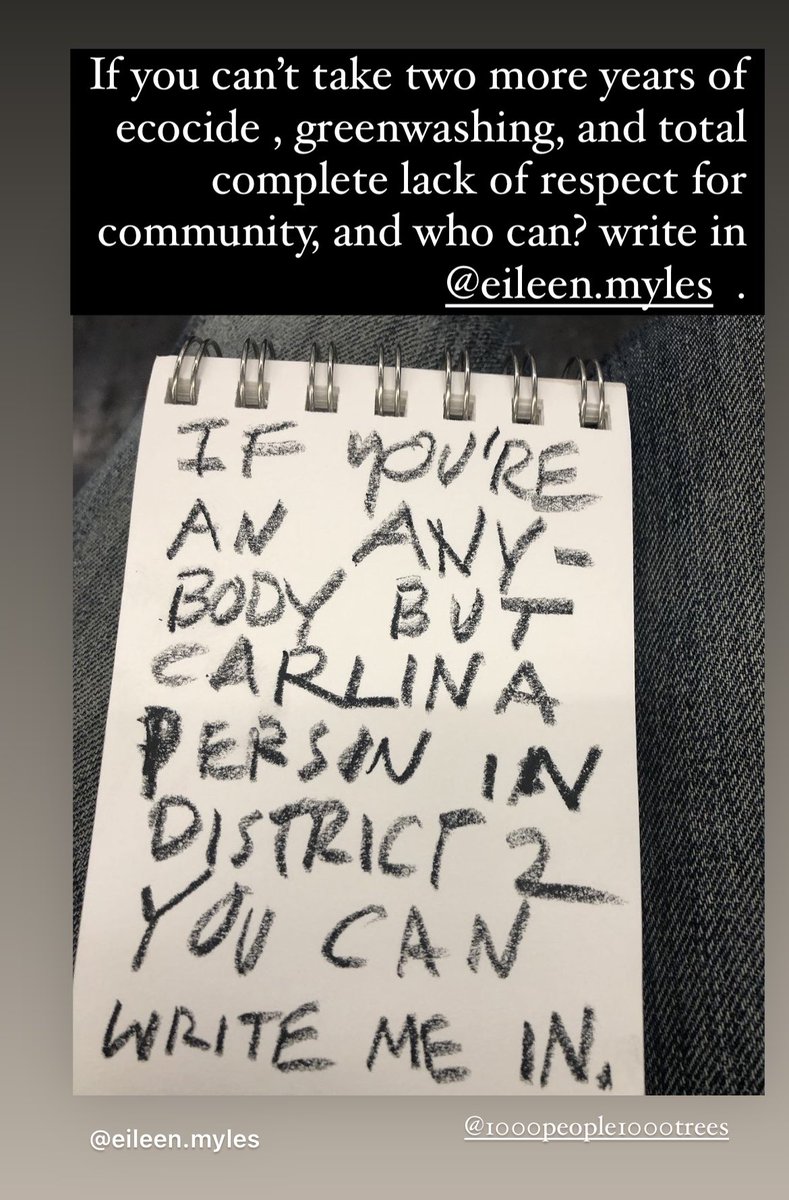 If you can’t take two more years of
ecocide , greenwashing, and total
complete lack of respect for
community, and who can? write in
@eileen.myles .
IF YOU'RE
AN ANY-
BODY BUT
CARLINA
PERSON IN
DISTRICT 2
YOU CAN
WRITE ME IN.
@eileen.myles
@1000people1000trees